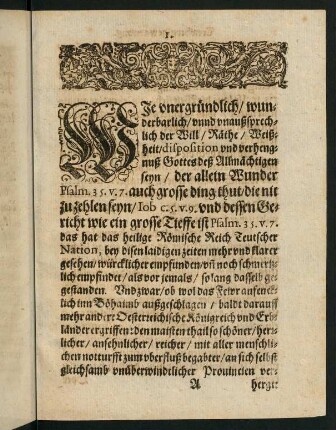 1.
WIe vnergründlich / wun-
derbarlich / vnnd vnaußsprech-
lich der Will / Räthe / Weiß-
heit / disposition vnd verheng-
nuß Gottes deß Allmächtigen
seyn / der allein Wunder
Psalm. 35. v. 7. auch grosse ding thut / die nit
zu zehlen seyn / Iob c. 5. v. 9. vnd dessen Ge-
richt wie ein grosse Tieffe ist Psalm. 35. v. 7.
das hat das heilige Römische Reich Teutscher
Nation, bey disen laidigen zeiten mehr vnd klarer
gesehen / würcklicher empfunden / vñ noch schmertz-
lich empfindet / als vor jemals / so lang dasselb ge-
gestanden. Vnd zwar / ob wol das Fewr anfenck-
lich inn Böhaimb außgeschlagen / baldt darauff
mehr andere Oesterreichische Königreich vnd Erb-
länder ergriffen: den maisten thail so schöner / herr-
licher / ansehnlicher / reicher / mit aller menschli-
chen notturfft zum vberfluß begabter / an sich selbst
gleichsamb vnüberwindlicher Prouincien ver-
A hergt